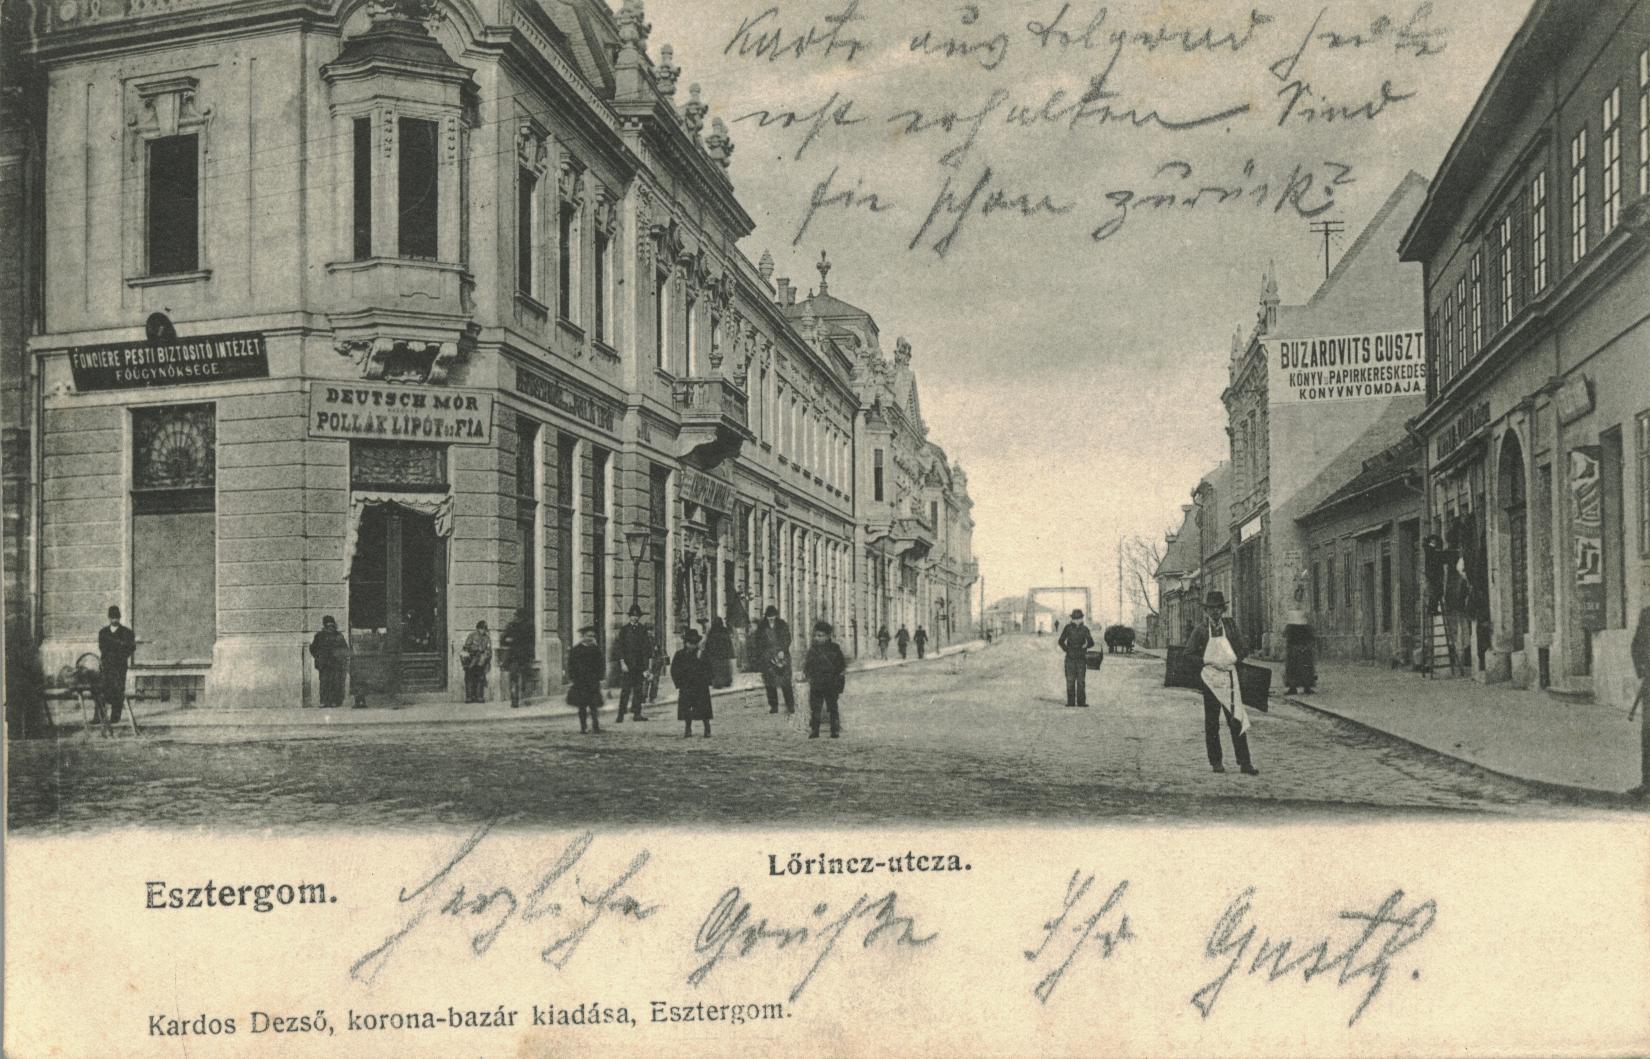 Karte aus Belgrad heute
erst erhalten. Sind
Sie schon zurück?
FONCIÈRE PESTI BIZTOSITÓ INTÉZET
FŐÜGYNÖKSÉGE
DEUTSCH MÓR
POLLÁK LIPÓT és FIA
BUZAROVITS GUSZT
KÖNYV és PAPIRKERESKEDÉS
KÖNYVNYOMDÁJA.
Lőrincz-utcza.
Esztergom.
Herzliche Grüße Ihr Gustl.
Kardos Dezső, korona-bazár kiadása, Esztergom.